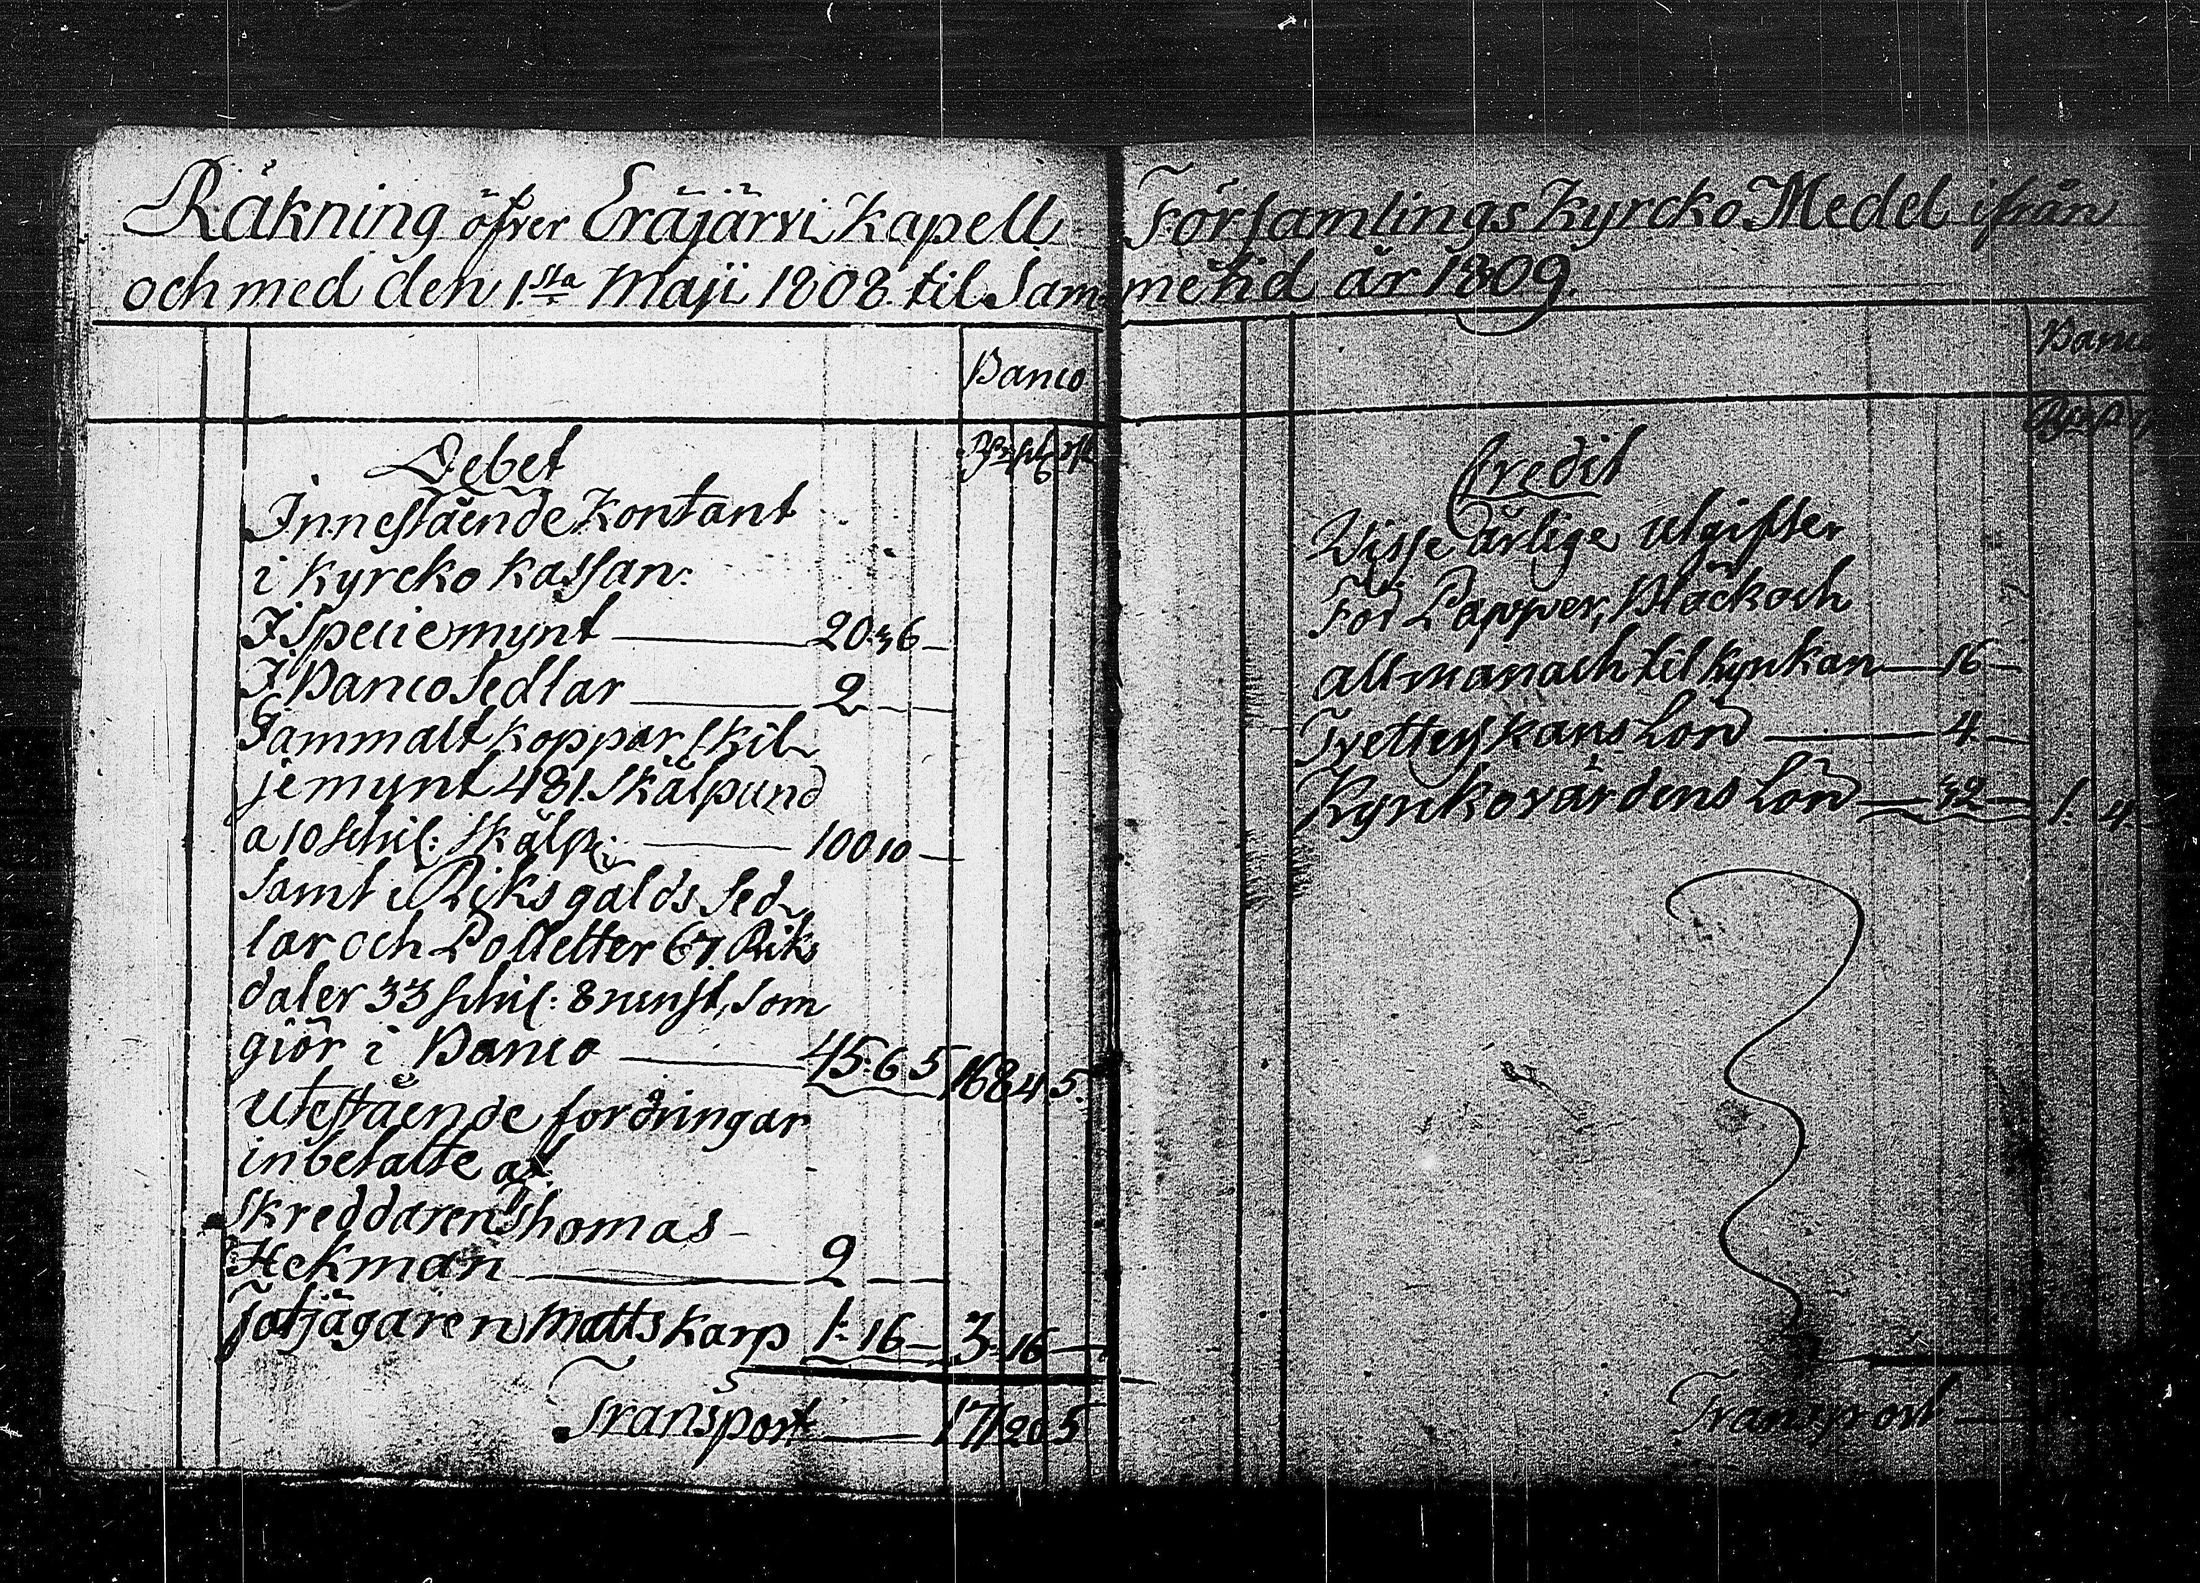 Räkning öfver Eräjärvi Kapell
och med den 1.sta Maji 1808. til Sam-
Banco
Debet
Innestående Kontant
i Kyrcko Kassan:
I Speciemynt 20. 36 –
I Banco Sedlar 2 – –
Gammalt koppar skil
jemynt 481. Skålpund
a 10 schil: skålp: 100 10 –
Samt i Riksgälds Sed
lar och Polletter 67. Riks
daler 33 schil: 8 runst. som
giör i Banco 45. 6 5 168 4 5.
Utestående fordringar
inbetalte af
Skreddaren Thomas
Hekman 2 – –
Fotjägaren Matts Karp 1: 16 – 3. 16 –
Transport 171 20 5
Församlings Kyrcko Medel ifrån
metid år 1809.
Banco
Credit
Wisse årlige Utgifter
För Papper, Bläck och
allmanach til Kyrkan 16 –
Tvetterskans Lön 4 –
Kyrkovärdens Lön 32 – 1: 4 –
Transport